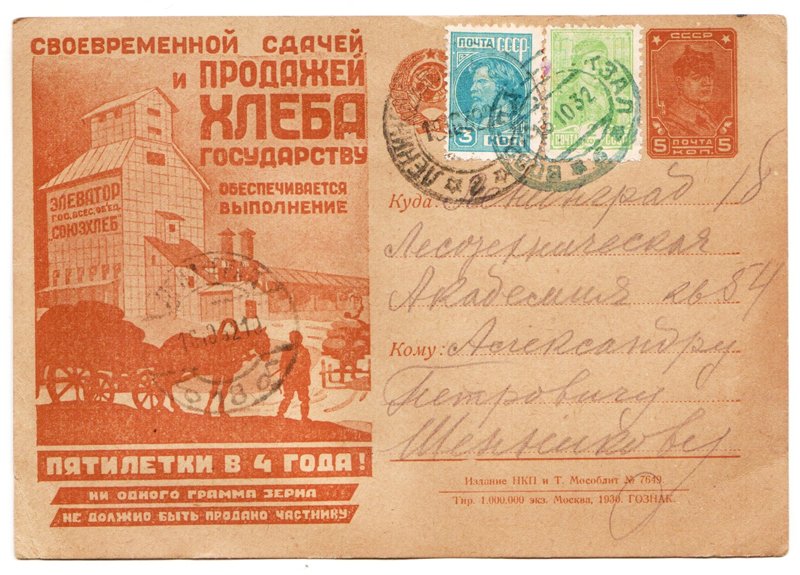 СВОЕВРЕМЕННОЙ СДАЧЕЙ
И ПРОДАЖЕЙ
ХЛЕБА
ГОСУДАРСТВУ
ОБЕСПЕЧИВАЕТСЯ
ВЫПОЛНЕНИЕ
ЭЛЕВАТОР
ГОС. ВСЕС. ОБ'ЕД.
"СОЮЗХЛЕБ"
ПЯТИЛЕТКИ В 4 ГОДА!
НИ ОДНОГО ГРАММА ЗЕРНА
НЕ ДОЛЖНО БЫТЬ ПРОДАНО ЧАСТНИКУ
ПОЧТА СССР
3 КОП.
СССР
5 ПОЧТА КОП. 5
Куда: Ленинград 18
Лесотехническая
Академия кв 54
Кому: Александру
Петровичу
Шенникову
Издание НКП и Т. Мособлит № 7649
Тир. 1.000.000 экз. Москва, 1930. ГОЗНАК.